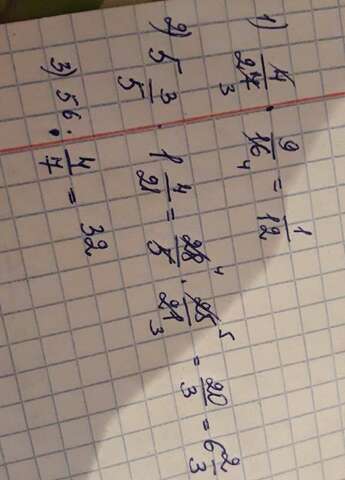 1) 4/27 3 · 9/16 4 = 1/12
2) 5 3/5 · 1 4/21 = 28 4/5 · 25 5/21 3 = 20/3 = 6 2/3
3) 56 · 4/7 = 32